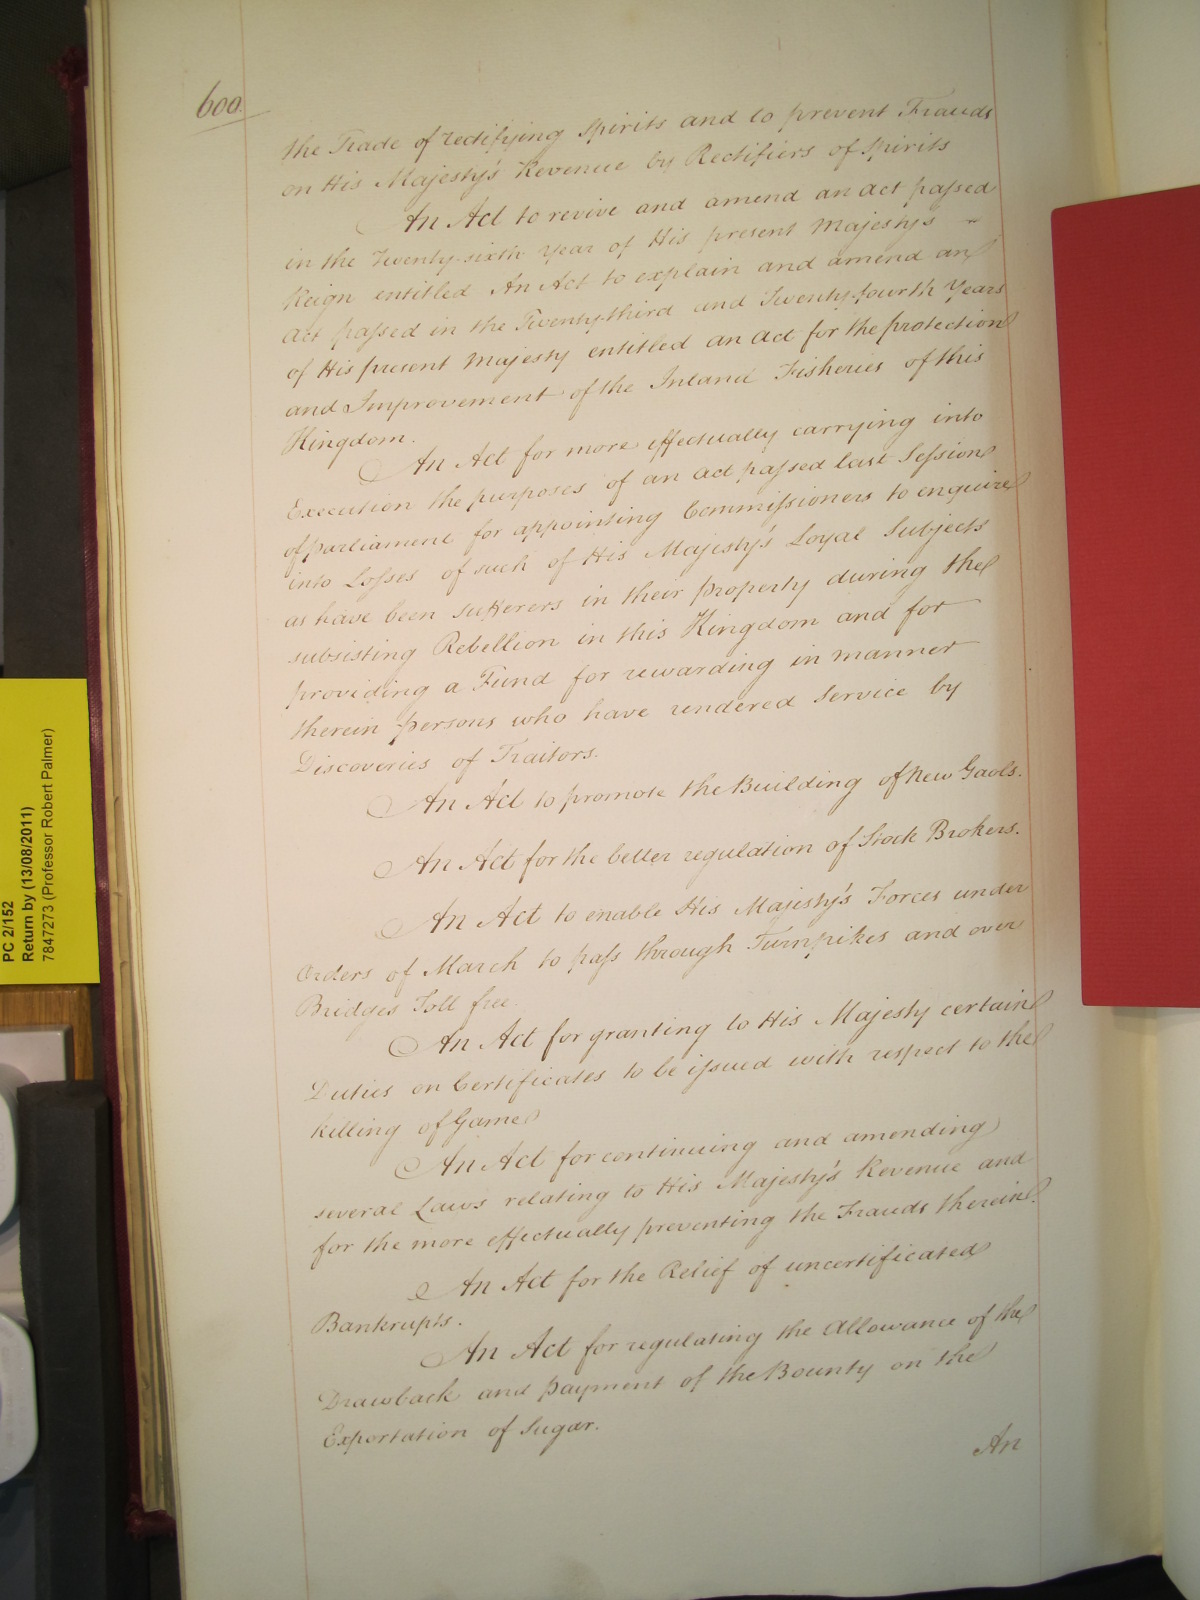 600.
the Trade of rectifying Spirits and to prevent Frauds
on His Majesty's Revenue by Rectifiers of Spirits
An Act to revive and amend an act passed
in the Twenty-sixth year of His present Majesty's
Reign entitled An Act to explain and amend an
act passed in the Twenty-third and Twenty-fourth Years
of His present Majesty entitled an act for the protection
and Improvement of the Inland Fisheries of this
Kingdom.
An Act for more effectually carrying into
Execution the purposes of an act passed last Session
of parliament for appointing Commissioners to enquire
into Losses of such of His Majesty's Loyal Subjects
as have been sufferers in their property during the
subsisting Rebellion in this Kingdom and for
providing a Fund for rewarding in manner
therein persons who have rendered Service by
Discoveries of Traitors.
An Act to promote the Building of New Gaols.
An Act for the better regulation of Stock Brokers.
An Act to enable His Majesty's Forces under
Orders of March to pass through Turnpikes and over
Bridges Toll free.
An Act for granting to His Majesty certain
Duties on Certificates to be issued with respect to the
killing of Game
An Act for continuing and amending
several Laws relating to His Majesty's Revenue and
for the more effectually preventing the Frauds therein.
An Act for the Relief of uncertificated
Bankrupts.
An Act for regulating the Allowance of the
Drawback and payment of the Bounty on the
Exportation of Sugar.
An
PC 2/152
Return by (13/08/2011)
7847273 (Professor Robert Palmer)